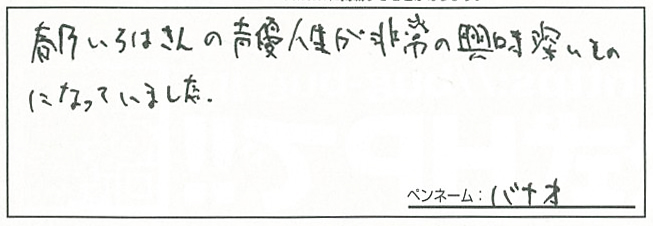 春乃いろはさんの声優人生が非常の興味深いもの
になっていました.
ペンネーム：バナオ